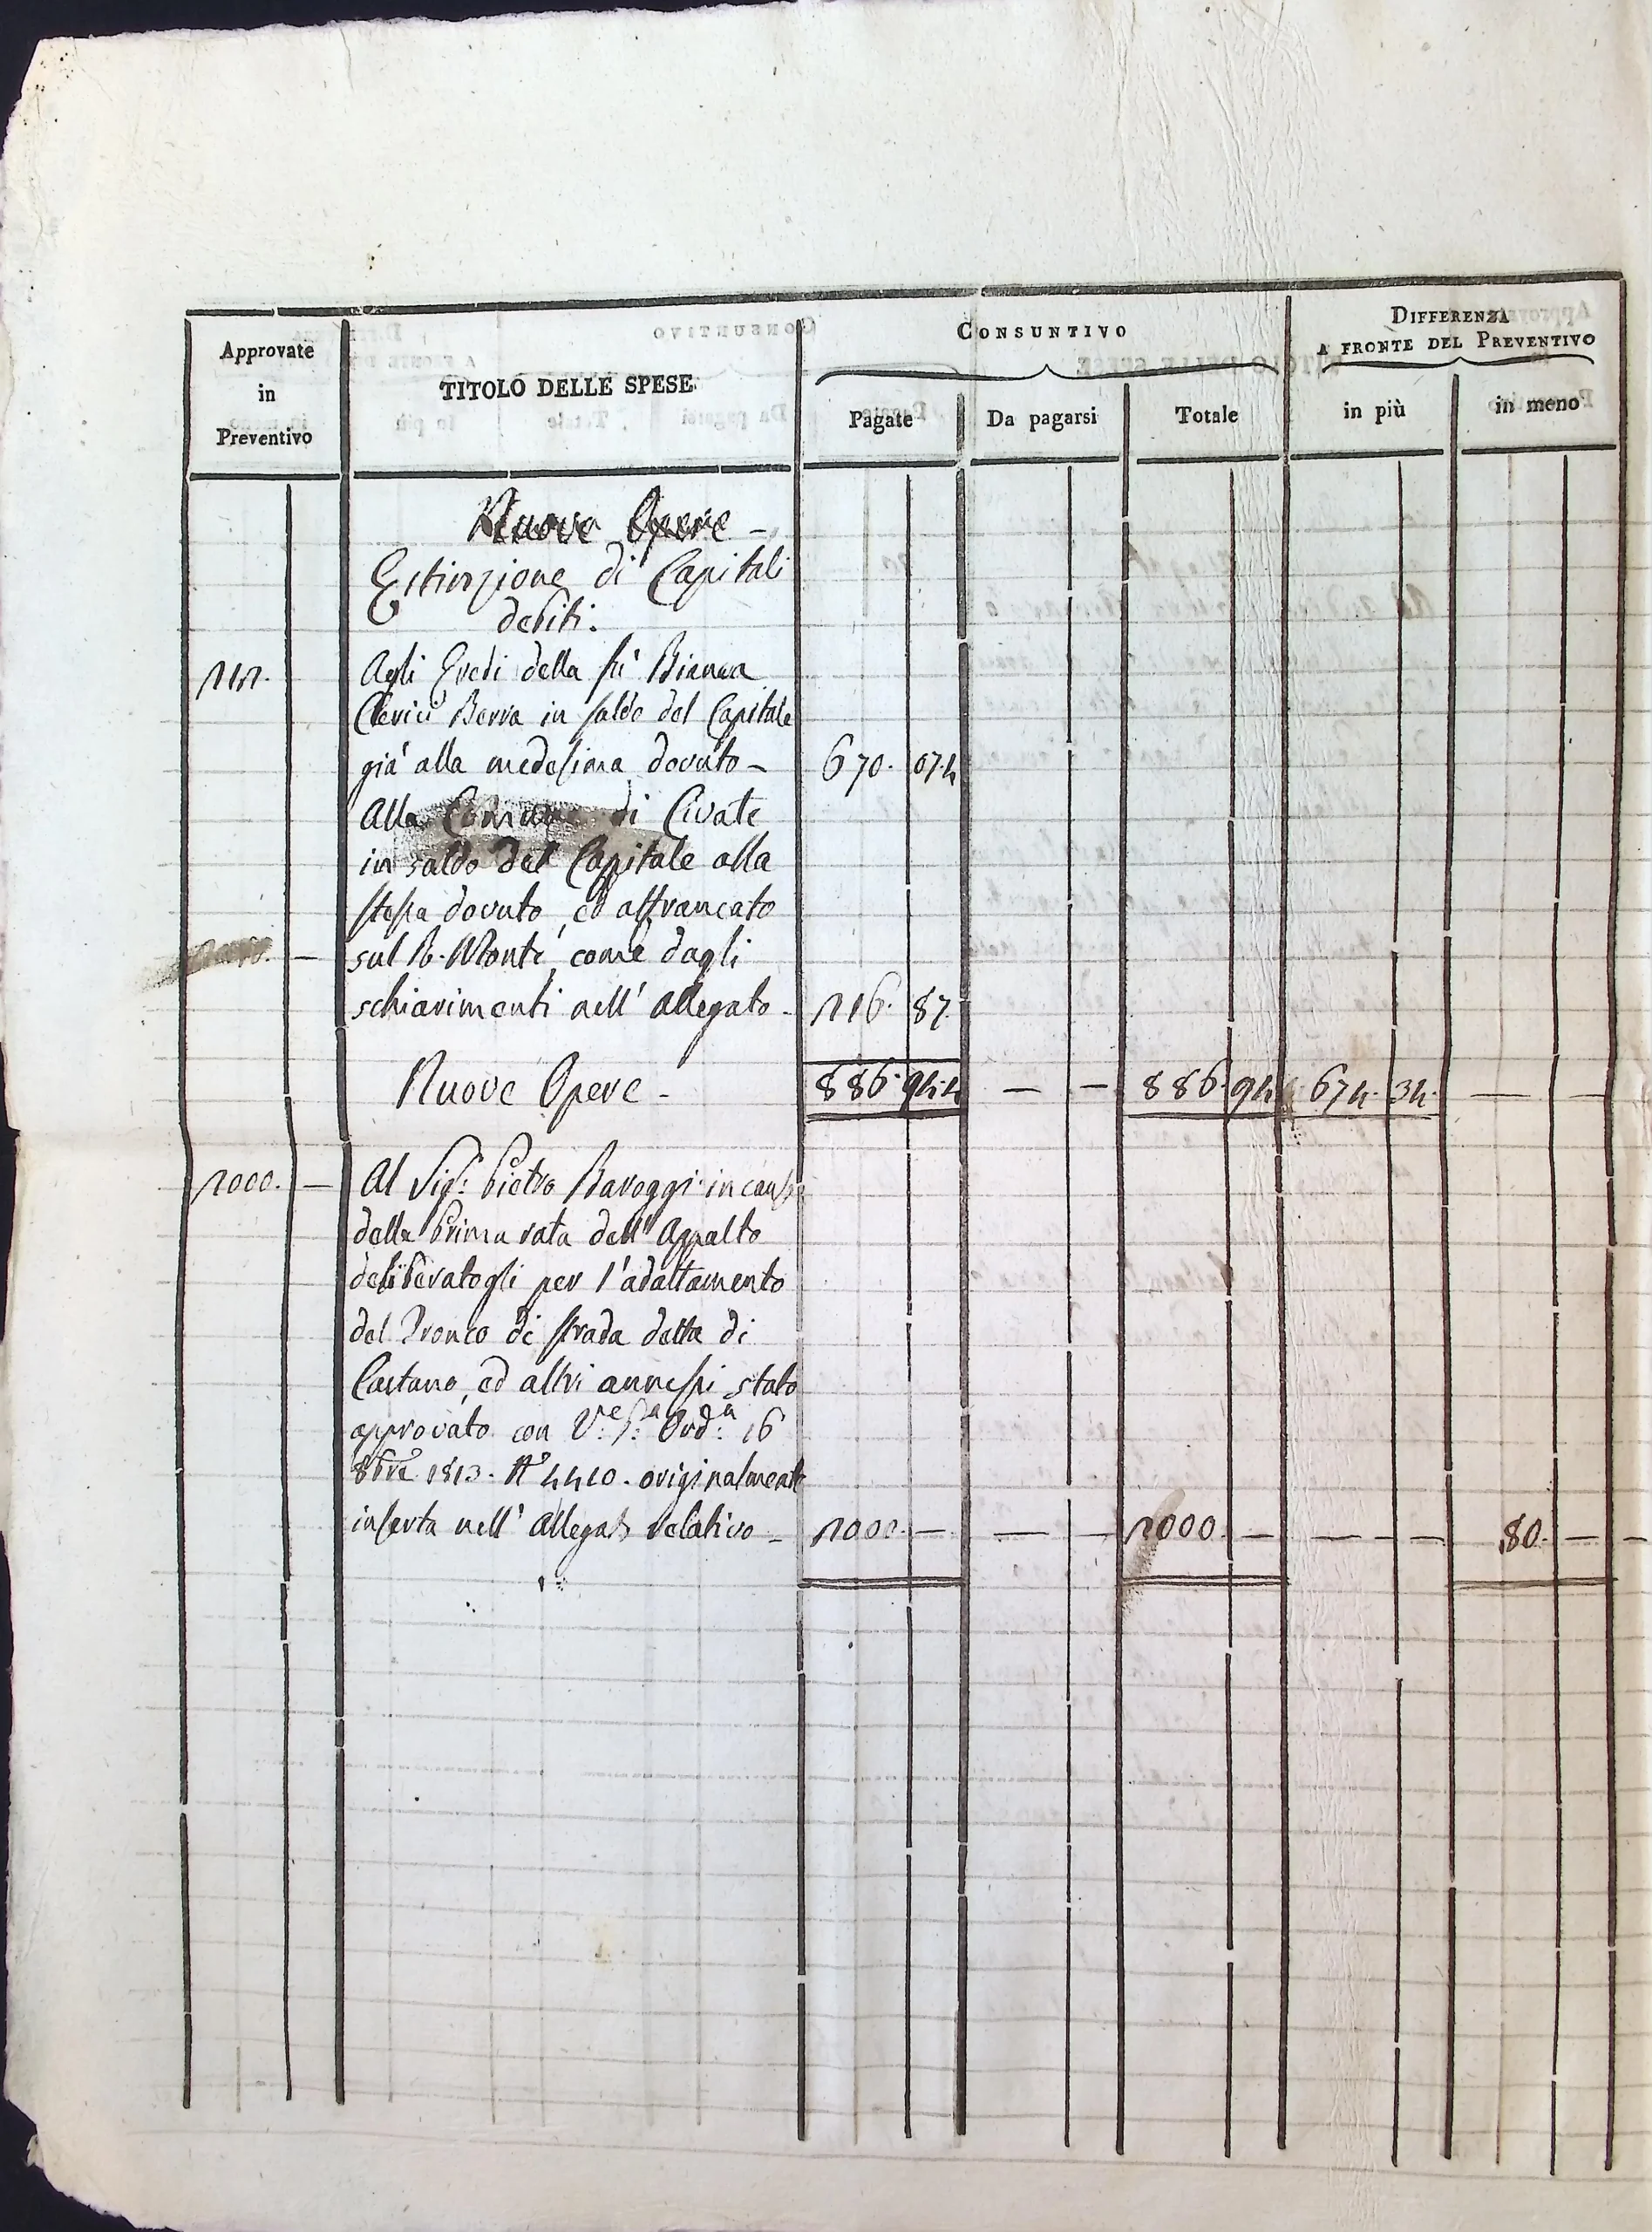 Approvate in Preventivo
TITOLO DELLE SPESE
CONSUNTIVO
Pagate
Da pagarsi
Totale
DIFFERENZA
A FRONTE DEL PREVENTIVO
in più
in meno
Nuove Opere -
Estinzione di Capitali
debiti.
212. Agli Eredi della fù Bianca
Clerici Berra in saldo del Capitale
già alla medesima dovuto - 670. 07.4
Alla Comune di Civate
in saldo del Capitale alla
stessa dovuto, ed affrancato
— sul R. Monte, come dagli
schiarimenti nell' allegato - 216. 87.
Nuove Opere - 886. 94.4 — — 886. 94 674. 34. — —
2000. — Al Sigr: Pietro Baroggi in causa
della Prima rata dell' Appalto
deliberatogli per l'adattamento
del Tronco di strada detta di
Castano, ed altri annessi stato
approvato con V.e P.a Ord.a 16
8bre 1813. N° 4410. originalmente
inserta nell' allegato relativo - 2000. — — — 2000. — — — 80. —